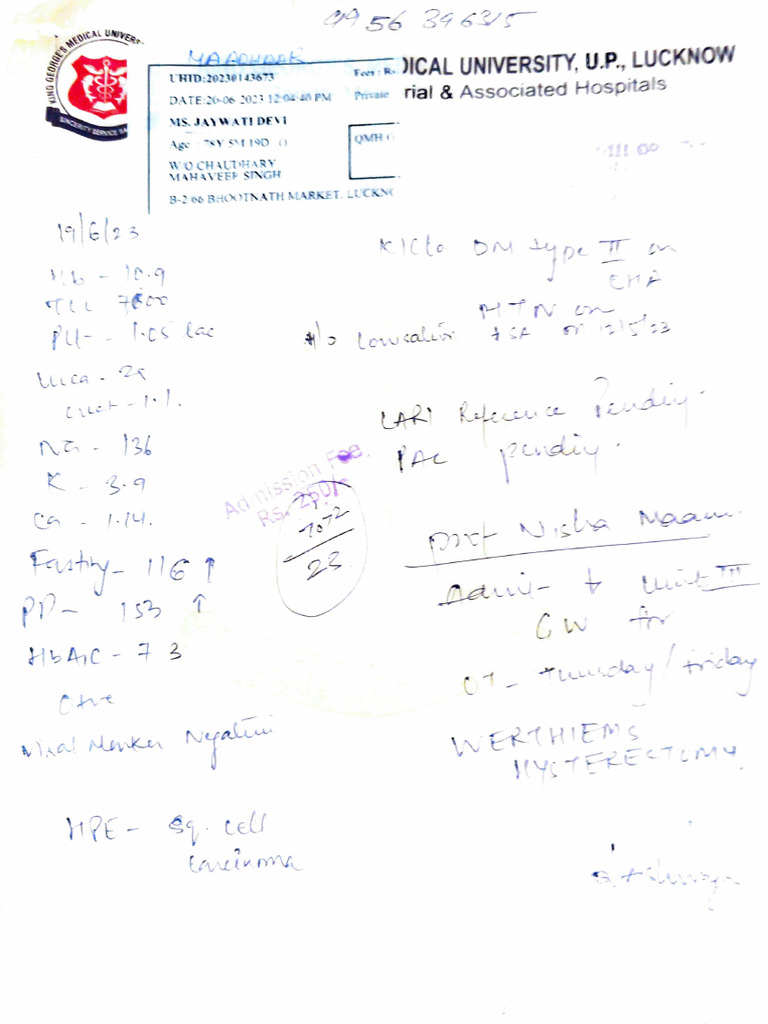 9956396315
KING GEORGE'S MEDICAL UNIVERS
SINCERITY SERVICE
DICAL UNIVERSITY, U.P., LUCKNOW
rial & Associated Hospitals
UHID:20230143673
Fees : R
DATE:20-06 2023 12:04:40 PM
Private
MS. JAYWATI DEVI
Age : 78Y 5M 19D ()
QMH
W/O CHAUDHARY
MAHAVEER SINGH
B-2 66 BHOOTNATH MARKET, LUCKN
19/6/23
K/C/o DM type II on
OHA
HTN on
Hb - 10.9
TLC 7800
Plt - 1.05 lac
Urea - 29
Creat - 1.1
Na - 136
K - 3.9
Ca - 1.14.
LARI Reference Pending.
PAC pending.
Admission Fee.
Rs. 250/-
7072
23
Prof Nisha Maam
Fasting - 116 ↑
PP - 153 ↑
HbA1C - 7 3
O +ve
Viral Marker Negative
Admit to Unit III
GW for
OT - Tuesday/Friday
WERTHIEMS
HYSTERECTOMY.
HPE - Sq. cell
carcinoma